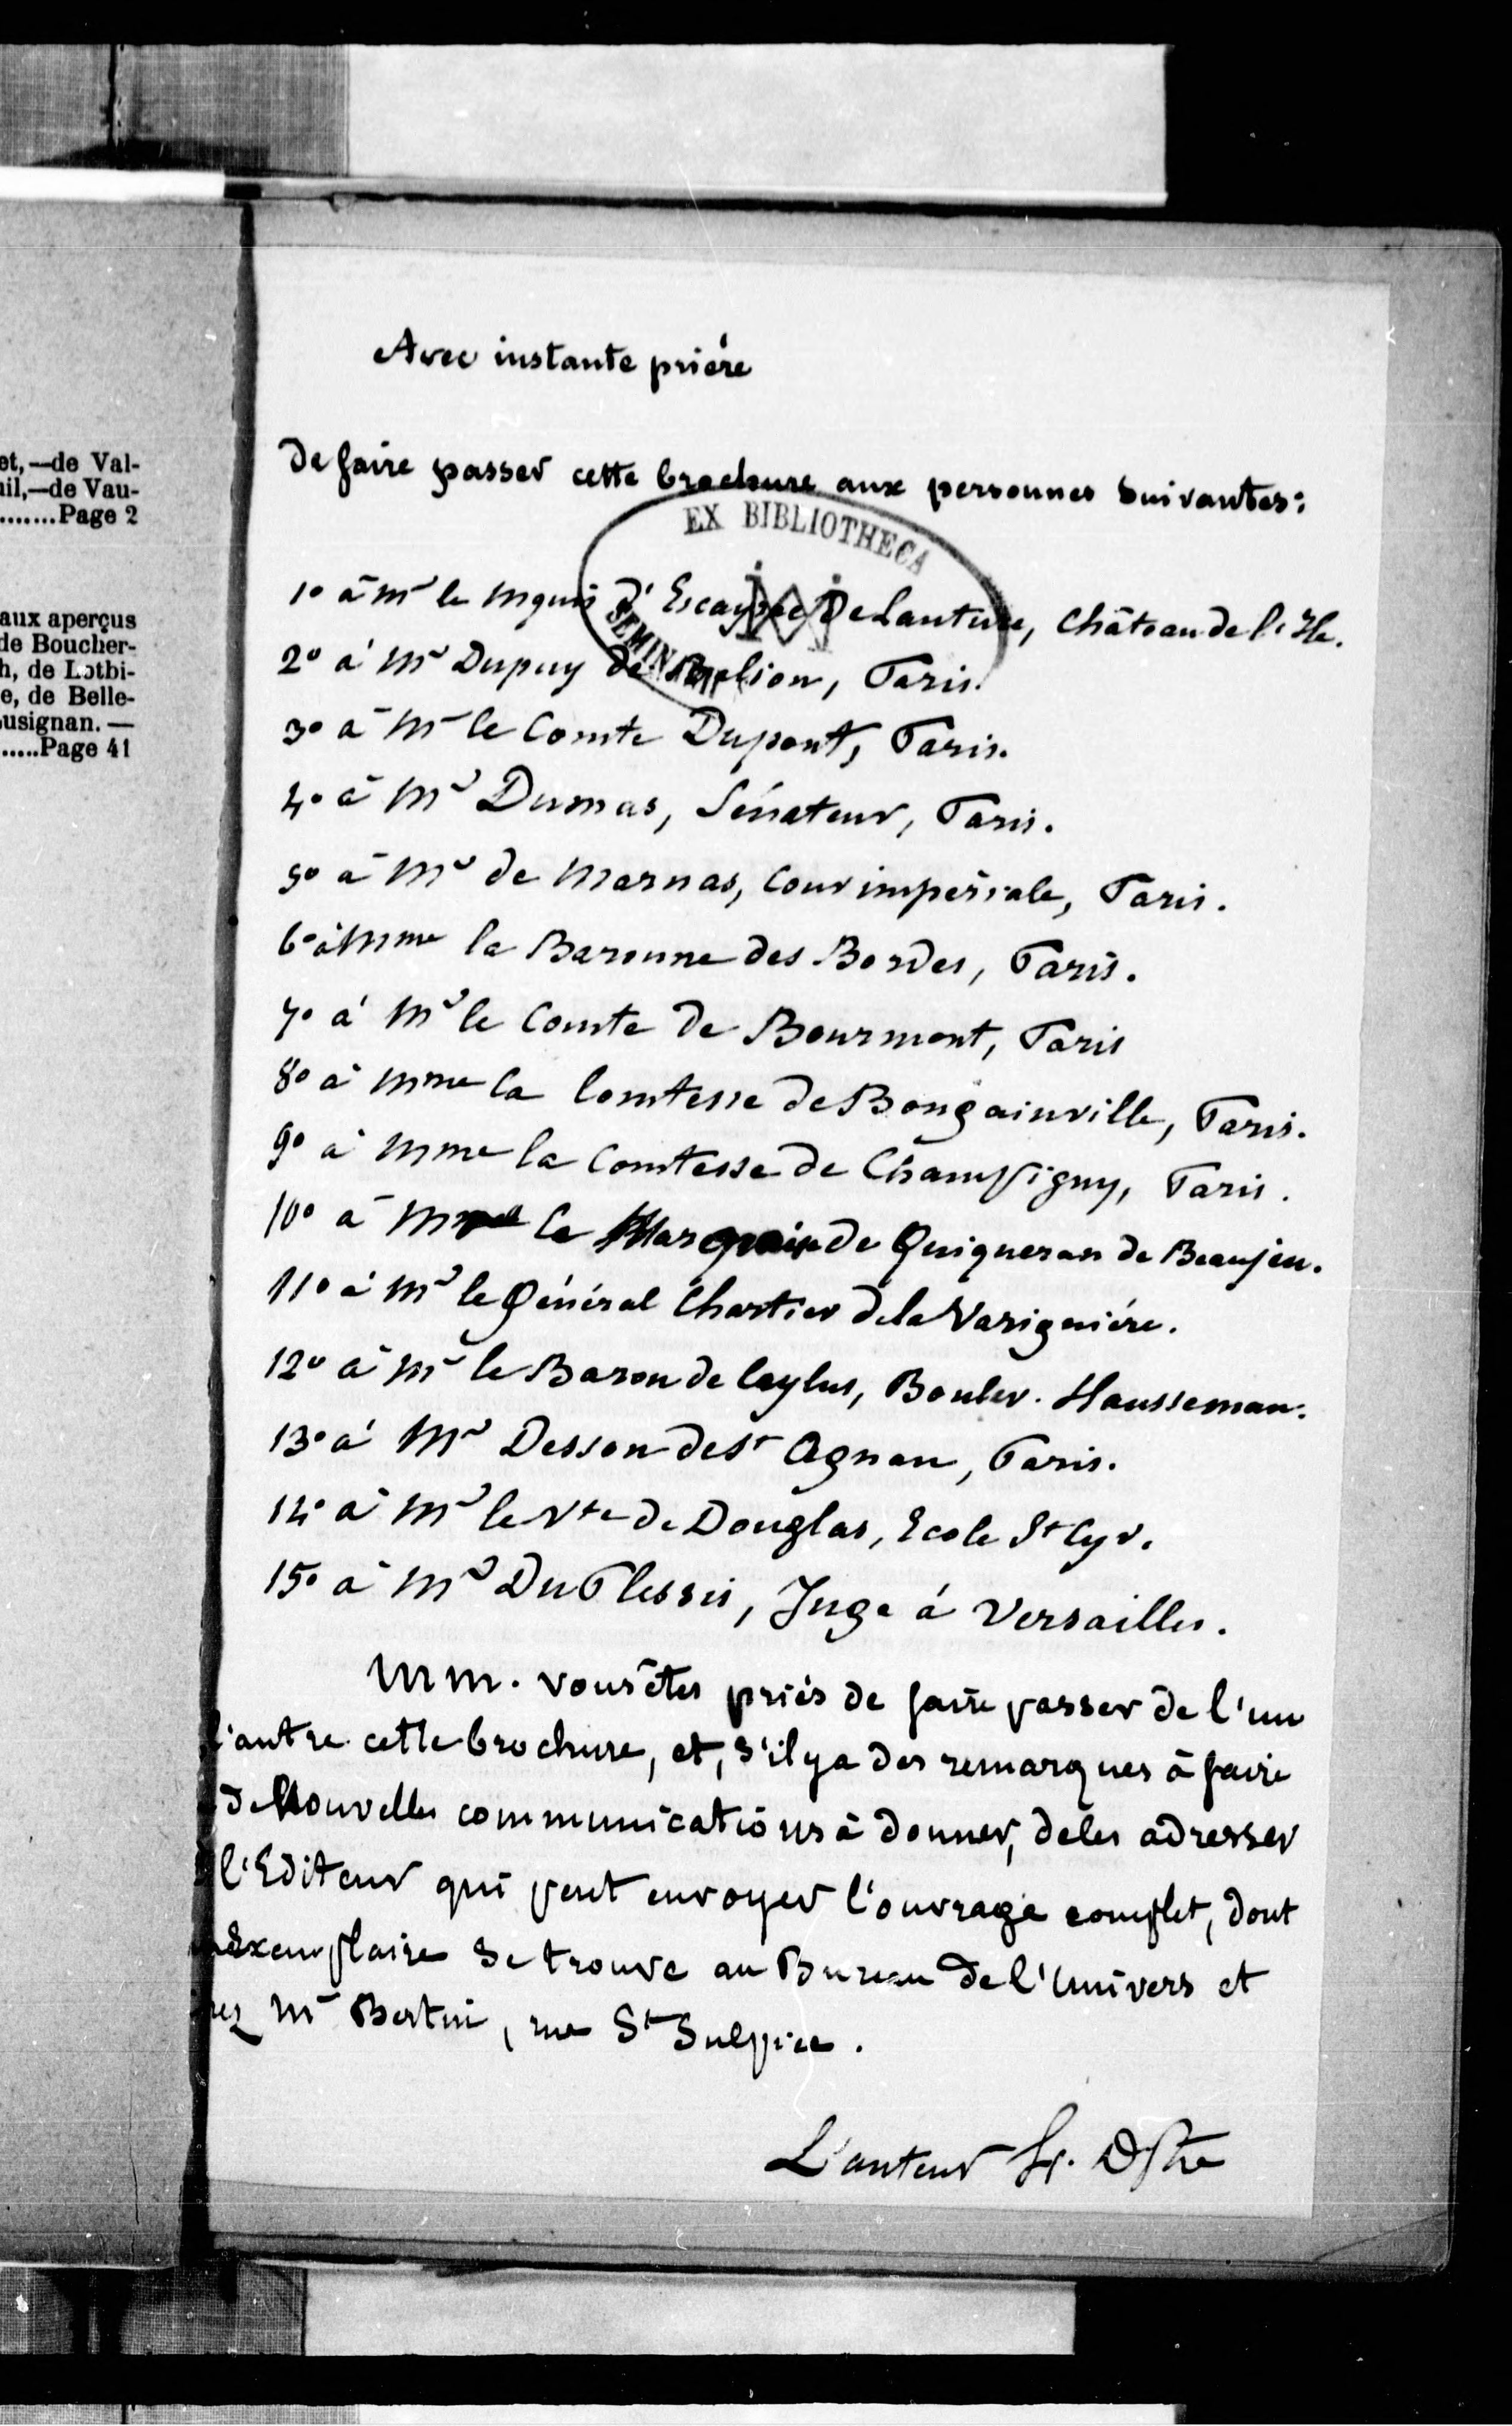 et,—de Val-
uil,—de Vau-
........Page 2
aux aperçus
de Boucher-
h, de Lotbi-
e, de Belle-
usignan. —
.....Page 41
Avec instante prière
de faire passer cette brochure aux personnes suivantes:
EX BIBLIOTHECA
1º à Mr le Mquis d'Escayrac De Lauture, Château de l'Ile.
2º à Mr Dupuy de Paris.
3º à Mr le Comte Dupont, Paris.
4º à Mr Dumas, Sénateur, Paris.
5º à Mr de Marnas, Cour impériale, Paris.
6º à Mme la Baronne des Bordes, Paris.
7º à Mr le Comte de Bourmont, Paris
8º à Mme la Comtesse de Bougainville, Paris.
9º à Mme la Comtesse de Champigny, Paris.
10º à le Marquis de Quiqueran de Beaujeu.
11º à Mr le Général Chartier de la Varignière.
12º à Mr le Baron de Caylus, Boulev. Hausseman.
13º à Mr Desson de St Agnan, Paris.
14º à Mr le Vte de Douglas, Ecole St Cyr.
15º à Mr DuPlessis, Juge à Versailles.
MM. vous êtes priés de faire passer de l'un
l'autre cette brochure, et, s'il y a des remarques à faire
de Nouvelles communications à donner, de les adresser
l'Editeur qui peut envoyer l'ouvrage complet, dont
Exemplaire se trouve au Bureau de l'Univers et
ez Mr Bertin, rue St Sulpice.
L'auteur